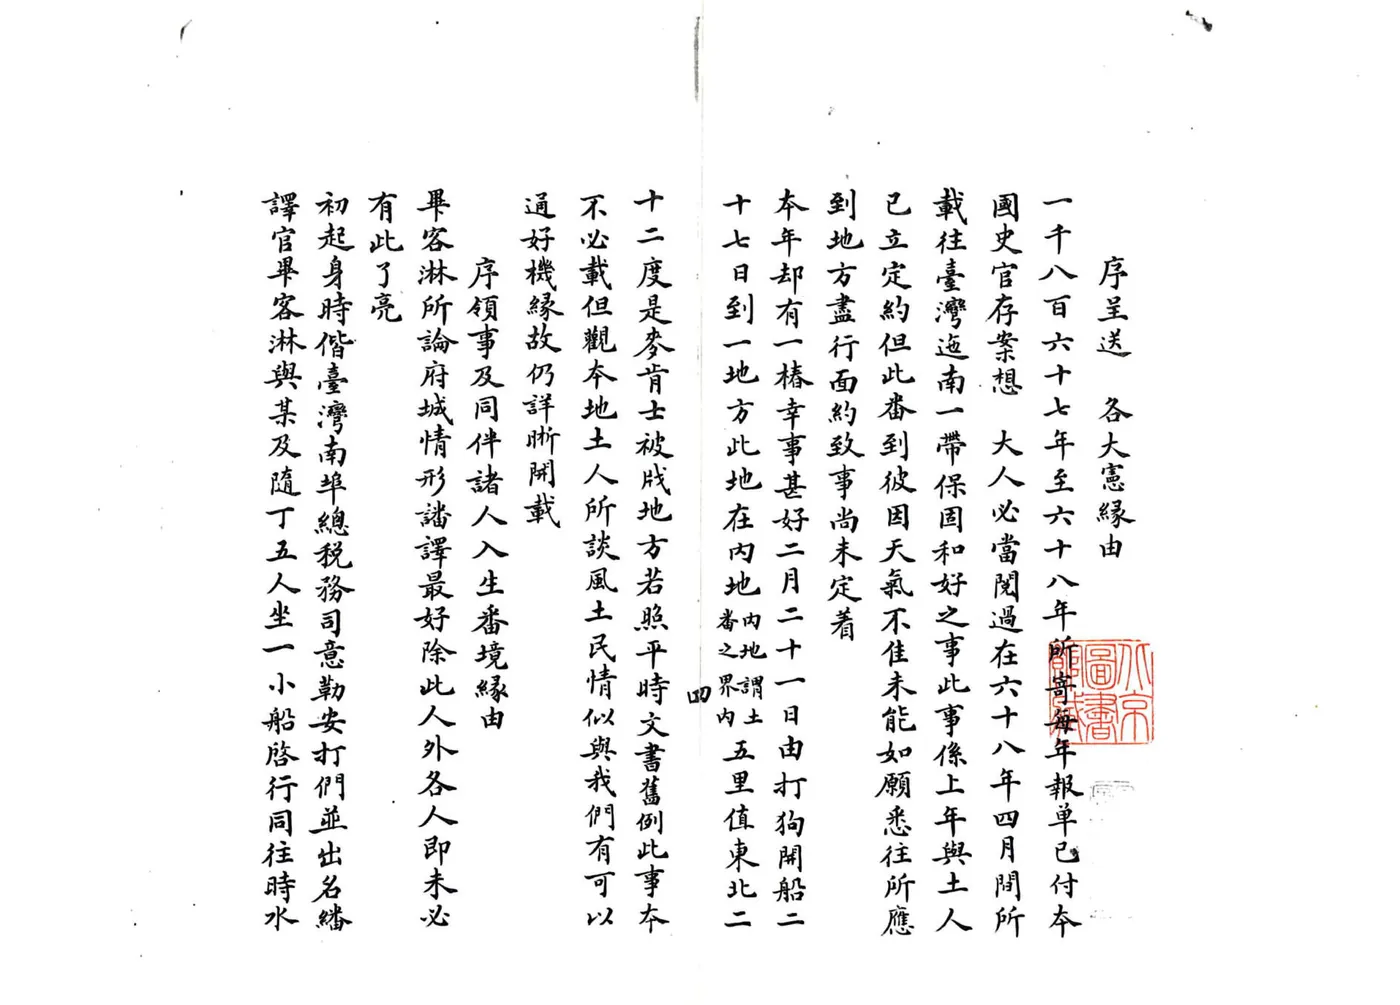 序呈送　各大憲緣由
一千八百六十七年至六十八年所寄每年報单已付本
國史官存案想　大人必當閱過在六十八年四月間所
載往臺灣迤南一帶保固和好之事此事係上年與土人
已立定約但此番到彼因天氣不佳未能如願悉往所應
到地方盡行面約致事尚未定着
本年却有一樁幸事甚好二月二十一日由打狗開船二
十七日到一地方此地在內地內地謂土番之界內五里值東北二
四
十二度是麥肯士被戕地方若照平時文書舊例此事本
不必載但觀本地土人所談風土民情似與我們有可以
通好機緣故仍詳晰開載
序領事及同伴諸人入生番境緣由
畢客淋所論府城情形譒譯最好除此人外各人即未必
有此了亮
初起身時偕臺灣南埠總税務司意勒安打們並出名繙
譯官畢客淋與某及隨丁五人坐一小船啓行同往時水
北京圖書館藏